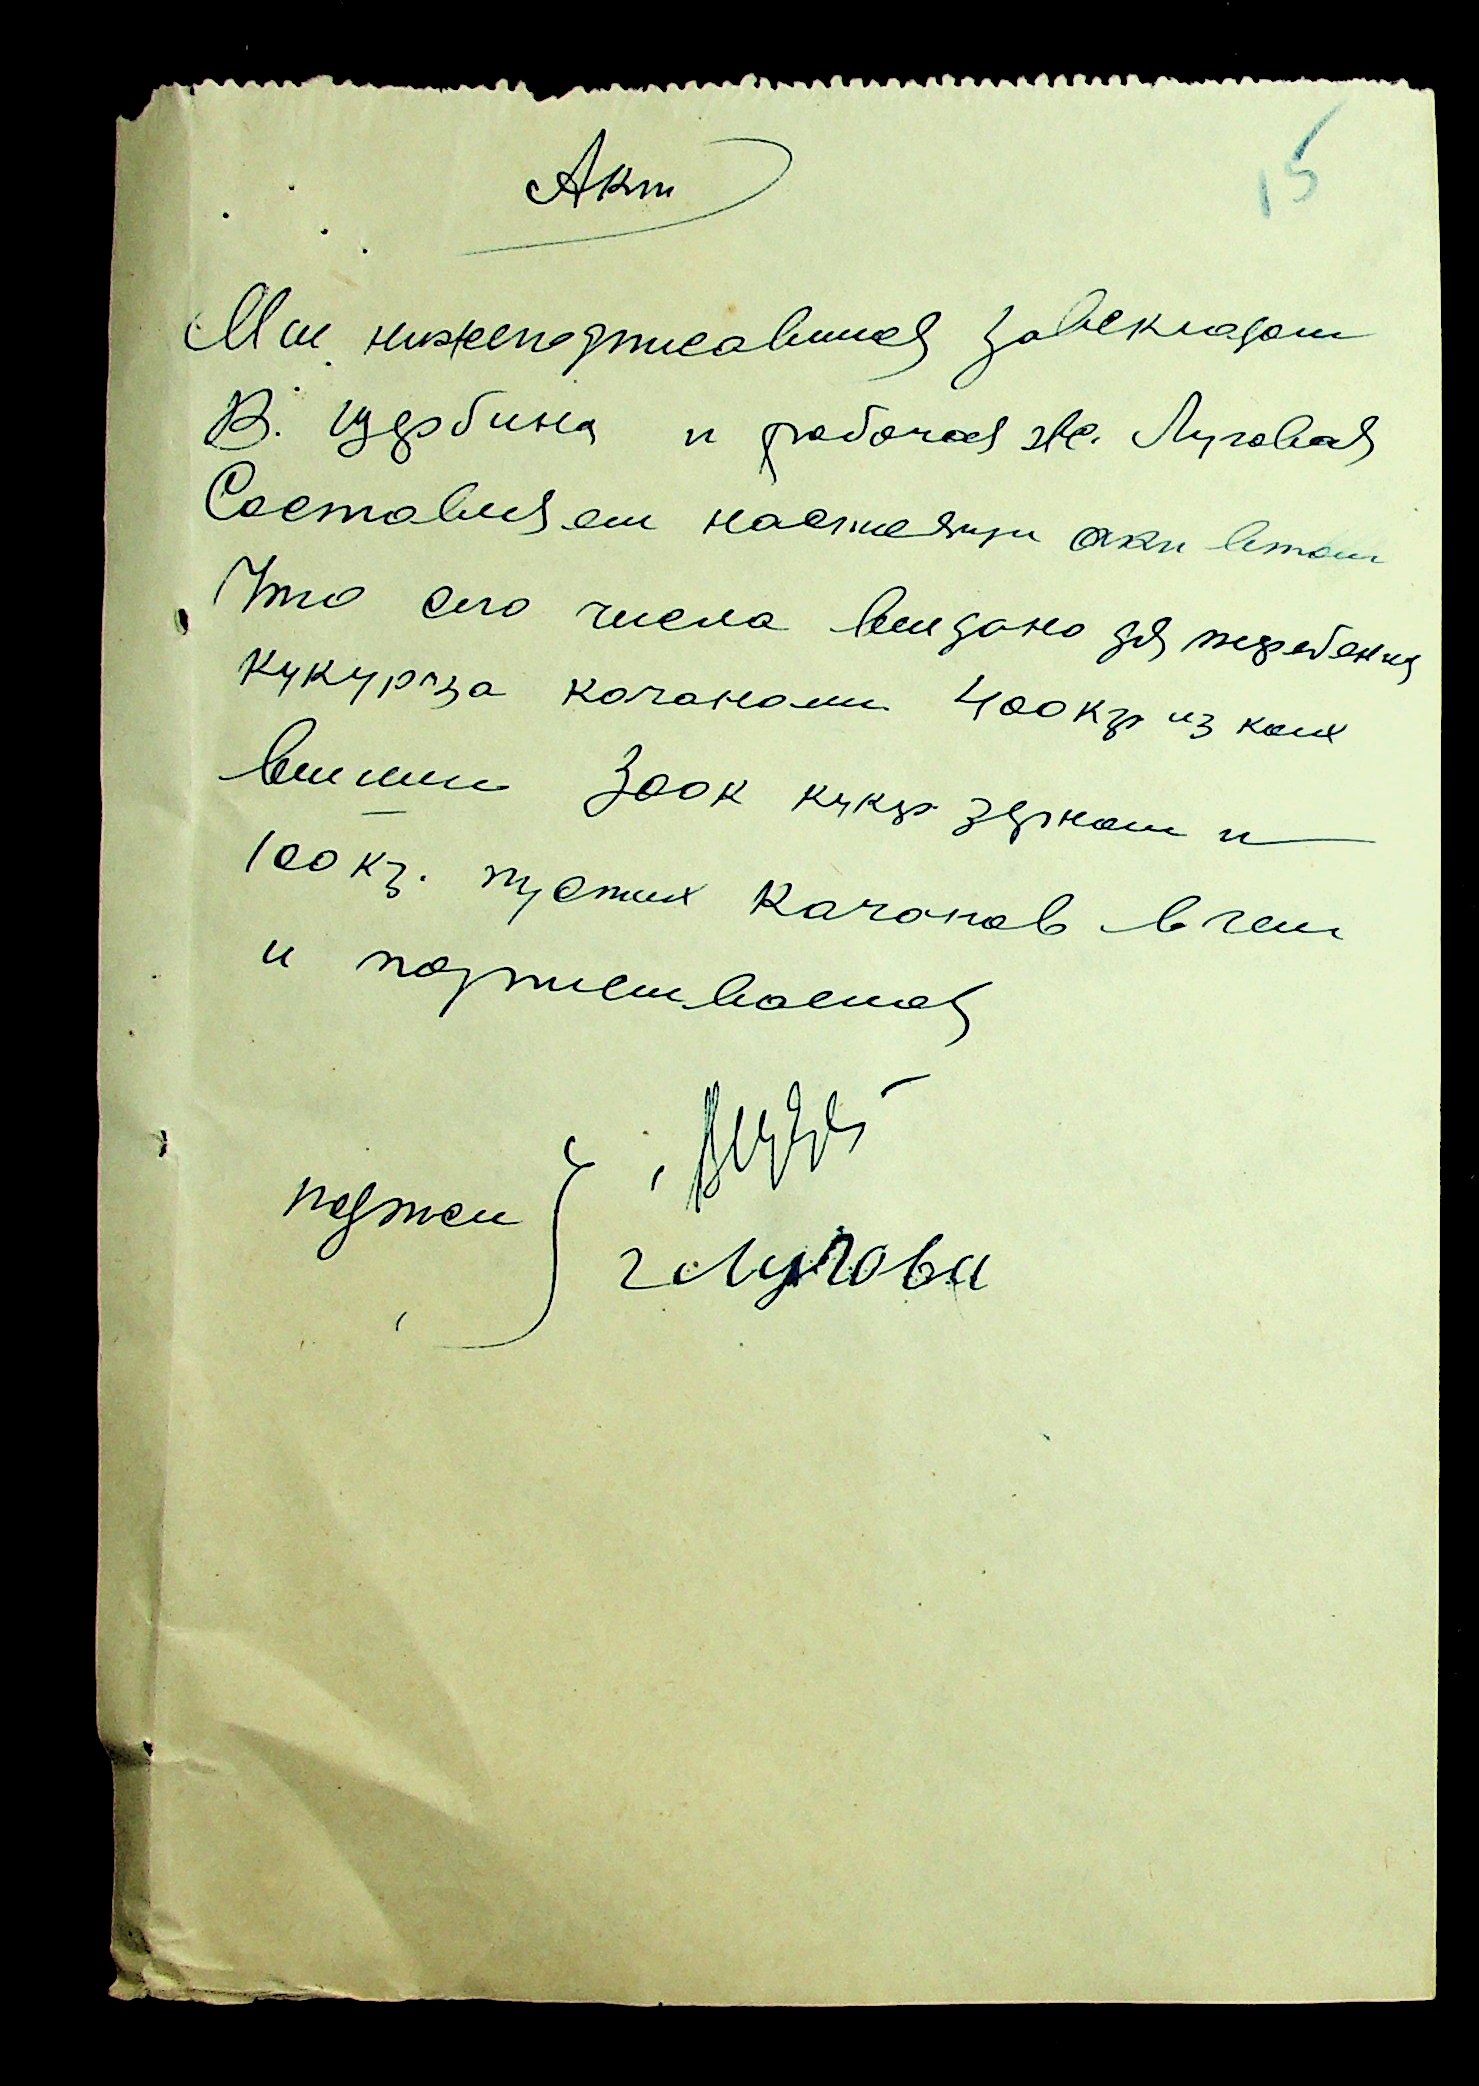 Акт
15
Мы нижеподписавшися завскладом
В. Щербина и рабочая Ж. Луговая
Составляем настоящи акт втом
Что сего числа выдано для
кукуруза кочанами 400кгр из коих
вышли 300к кукур зерном и
100 кг. пустых качанов в чем
и подписываемся
подписи
Лугова